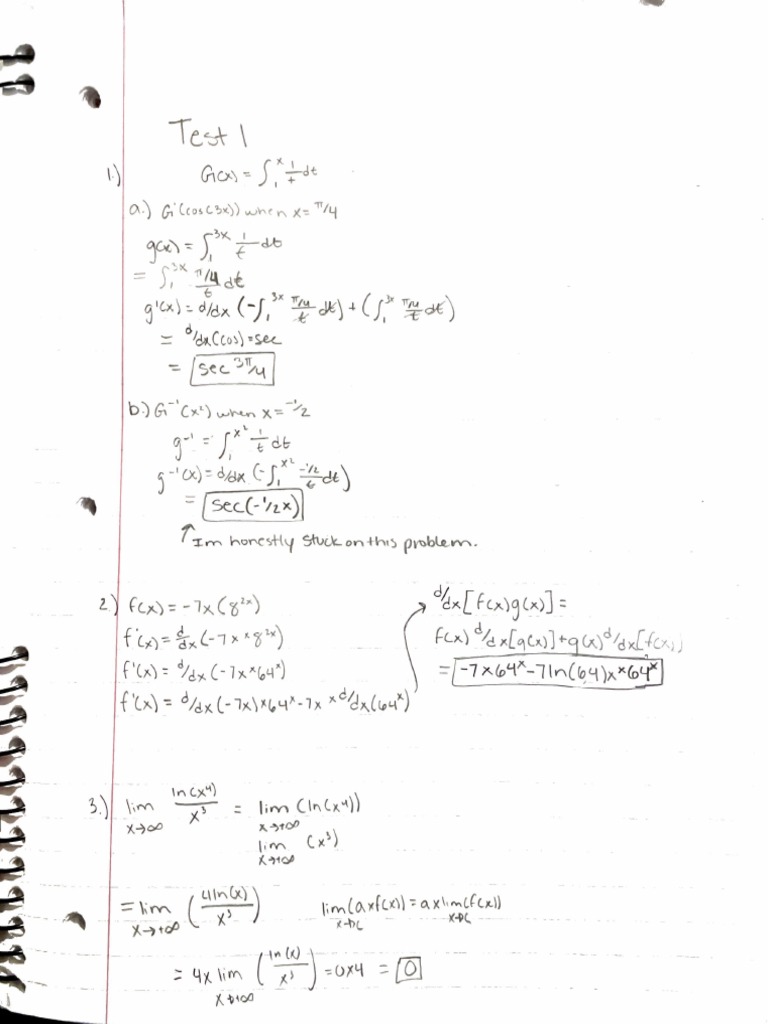 Test 1
1.) G(x) = ∫₁ˣ 1/t dt
a.) G'(cos(3x)) when x = π/4
g(x) = ∫₁³ˣ 1/t dt
= ∫₁³ˣ (π/4)/t dt
g'(x) = d/dx (-∫₁³ˣ (π/4)/t dt) + (∫₁³ˣ (π/4)/t dt)
= d/dx(cos) = sec
= sec 3π/4
b.) G⁻¹(x²) when x = -1/2
g⁻¹ = ∫₁ˣ² 1/t dt
g⁻¹(x) = d/dx (-∫₁ˣ² (-1/2)/t dt)
= sec(-1/2x)
↑ Im honestly stuck on this problem.
2.) f(x) = -7x(8²ˣ)
f'(x) = d/dx (-7x × 8²ˣ)
f'(x) = d/dx (-7x × 64ˣ)
f'(x) = d/dx (-7x) × 64ˣ - 7x × d/dx (64ˣ)
d/dx [f(x)g(x)] =
f(x) d/dx [g(x)] + g(x) d/dx [f(x)]
= -7 × 64ˣ - 7 ln(64) x × 64ˣ
3.) lim x→∞ ln(x⁴)/x³ = lim x→+∞ (ln(x⁴))
lim x→+∞ (x³)
= lim x→+∞ (4ln(x)/x³) lim x→c (a×f(x)) = a×lim x→c (f(x))
= 4× lim x→+∞ (ln(x)/x³) = 0×4 = 0